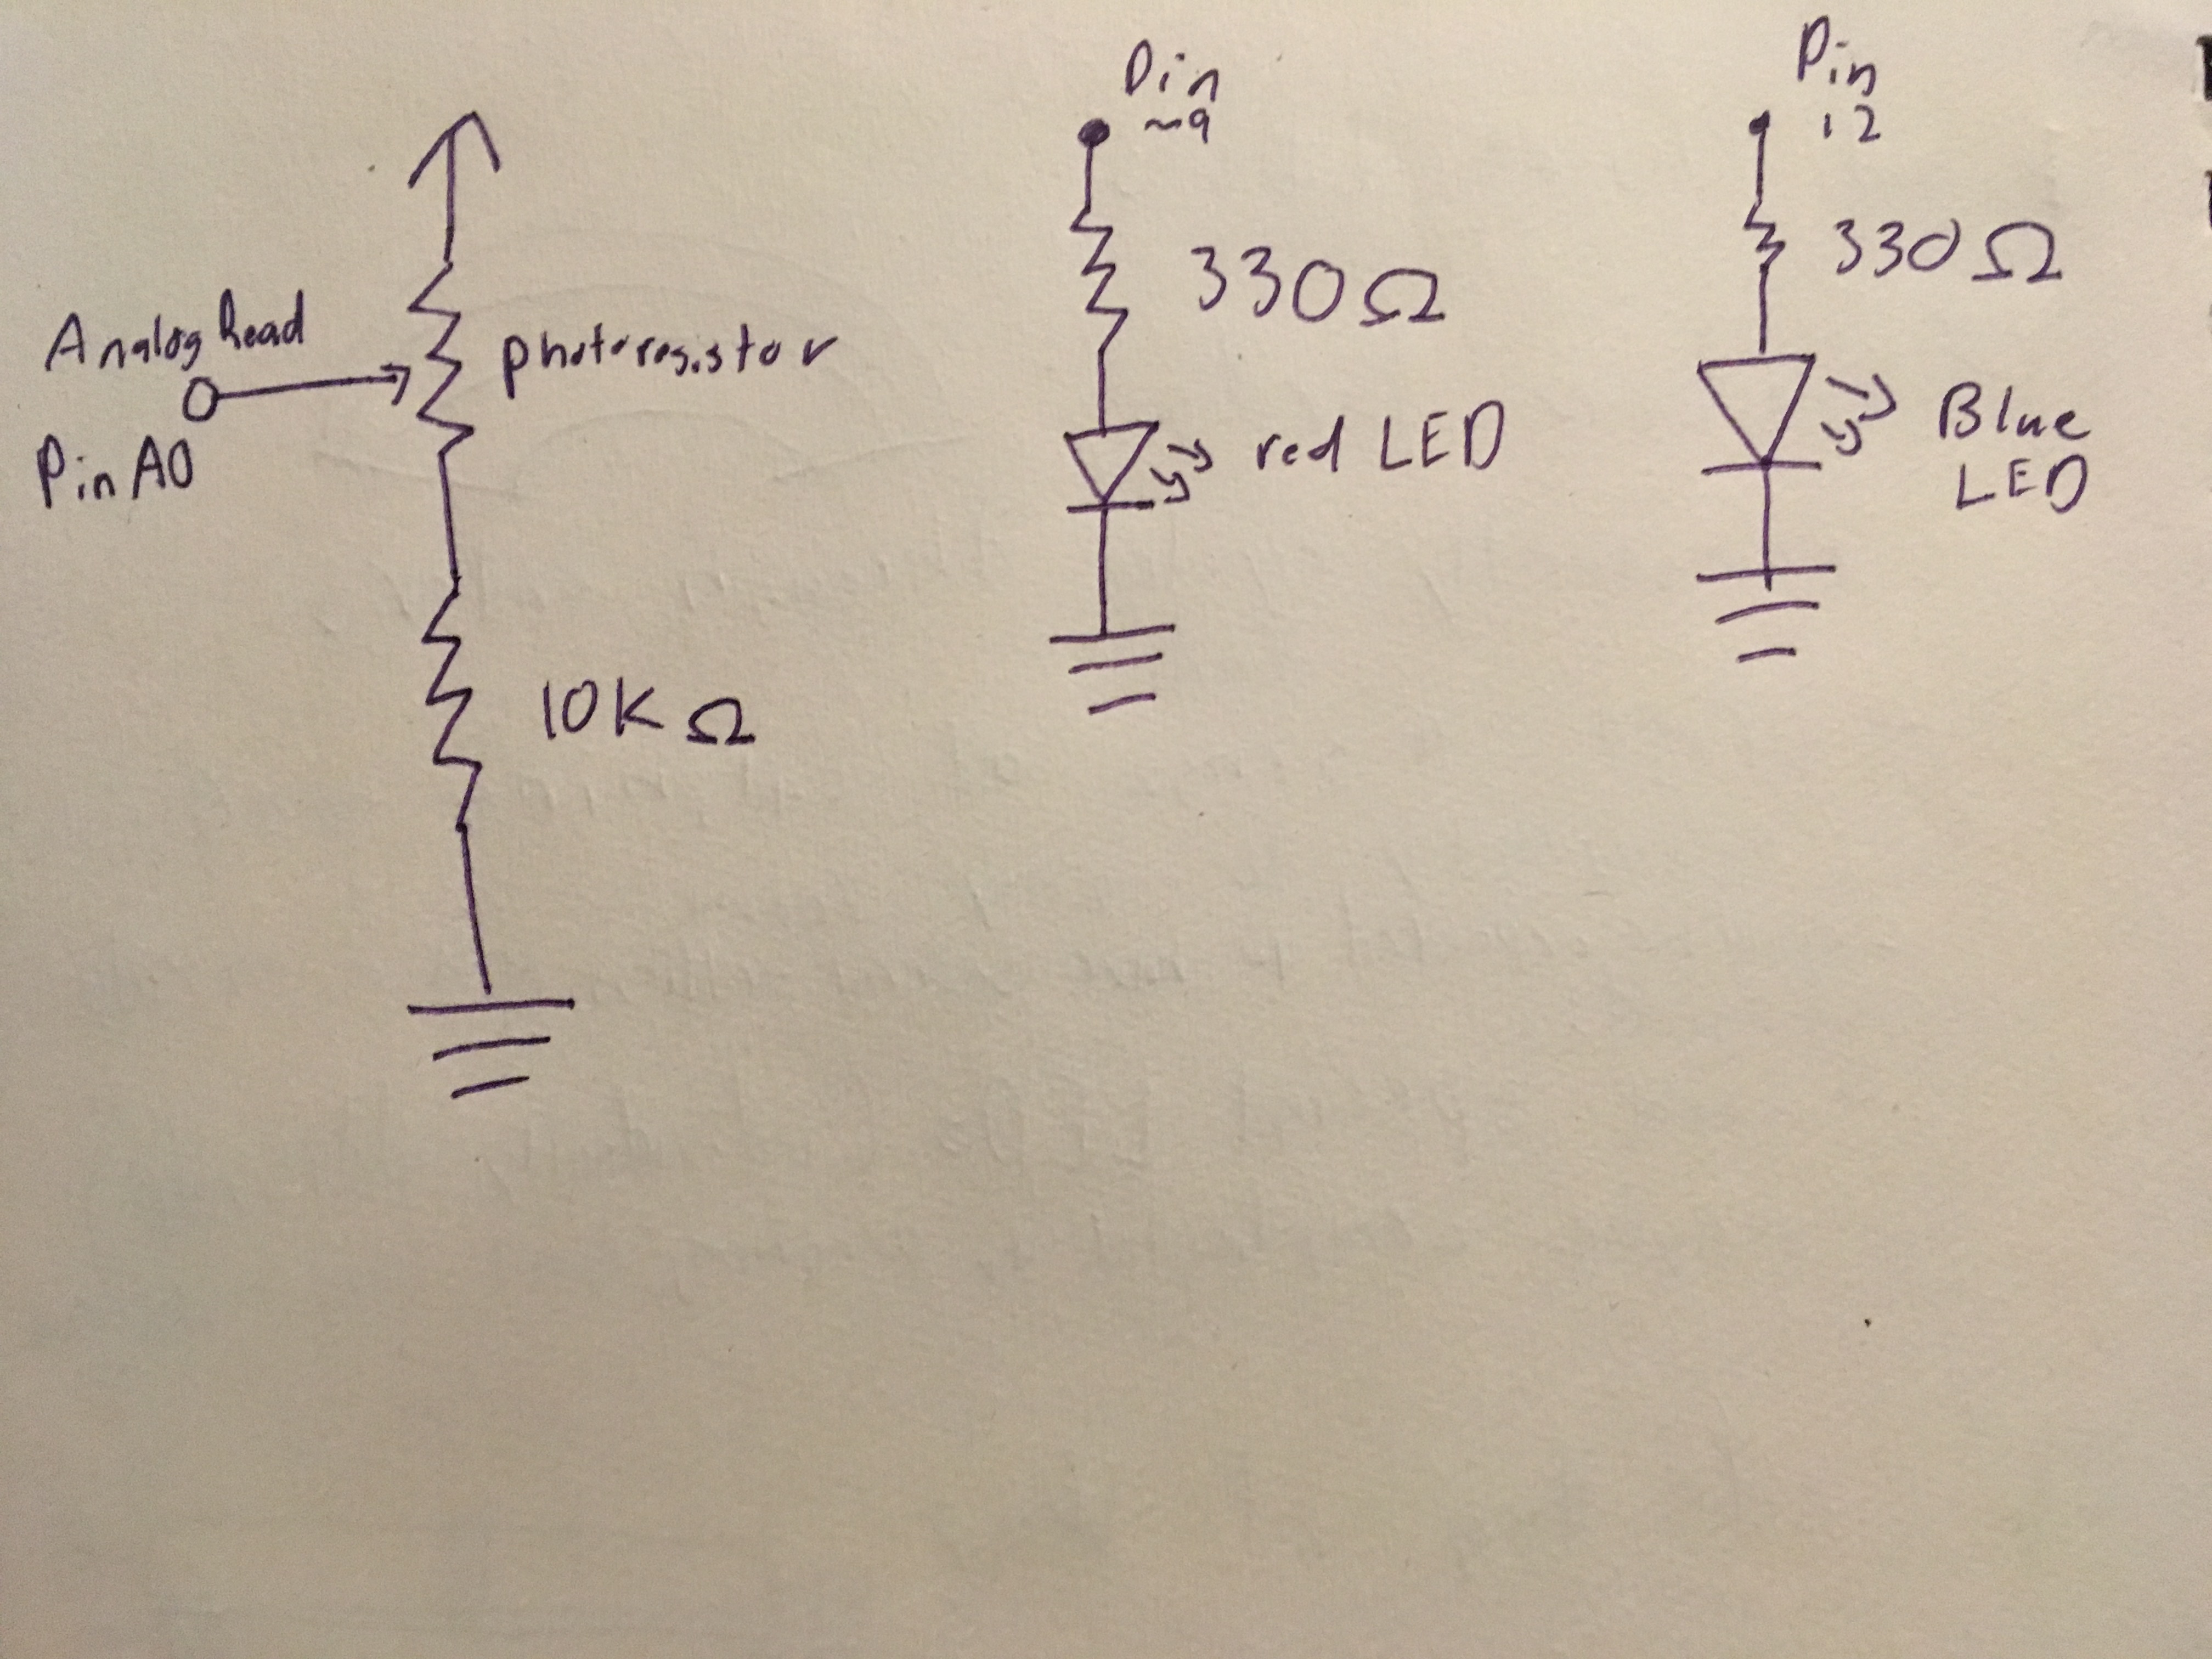 Analog Read
Pin A0
photoresistor
10K Ω
Pin
~9
330Ω
red LED
Pin
12
330Ω
Blue
LED